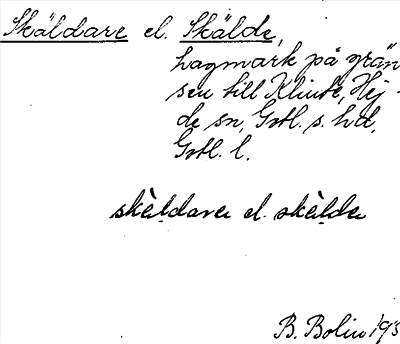 Skäldare el. Skälde,
hagmark på grän
sen till Klinte, Hej-
de sn, Gotl. s. hd,
Gotl. l.
skèldarə el. skèldə
B. Bolin 193